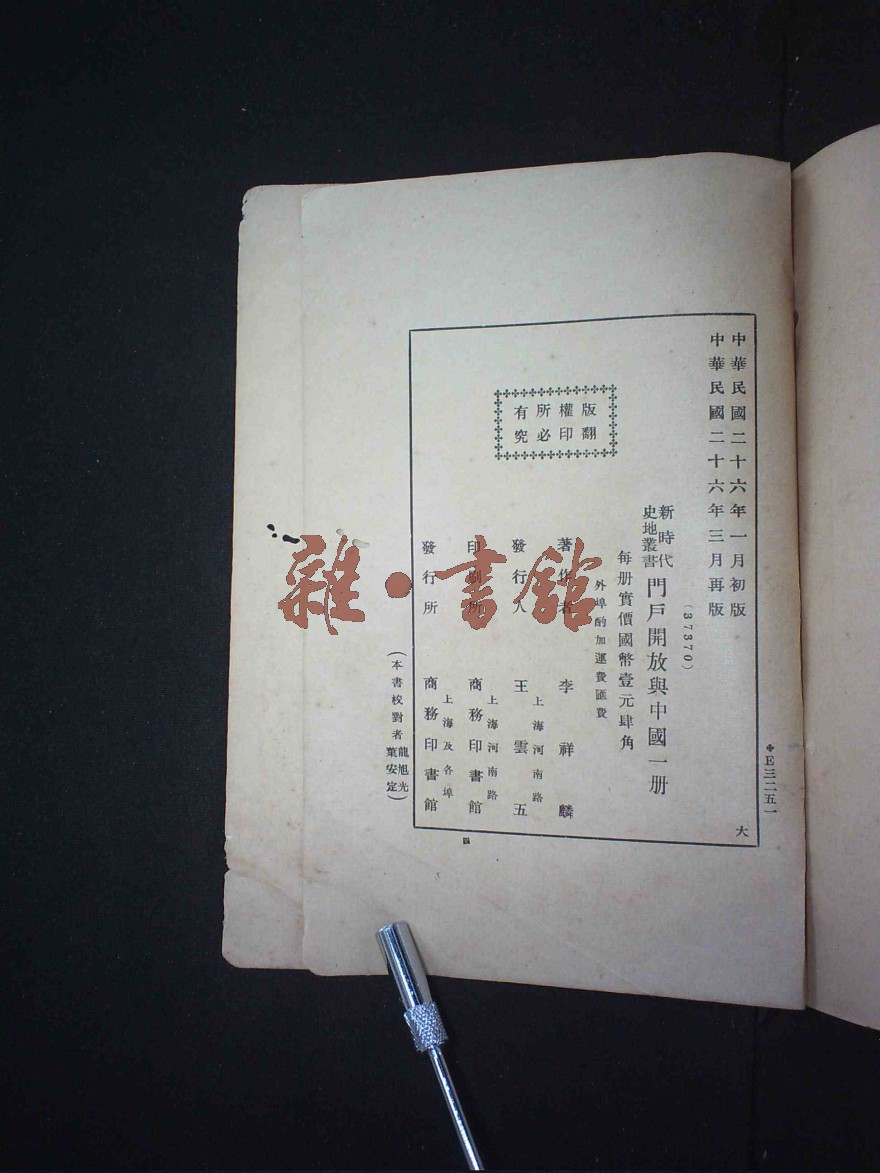 中華民國二十六年一月初版
中華民國二十六年三月再版
❖E三二五一
大
(37370)
新時代
史地叢書
門戶開放與中國一册
每册實價國幣壹元肆角
外埠酌加運費匯費
版權所有
翻印必究
著作者 李祥麟
發行人 王雲五
上海河南路
印刷所 商務印書館
上海河南路
發行所 商務印書館
上海及各埠
(本書校對者龍旭光葉安定)
四
雜·書館